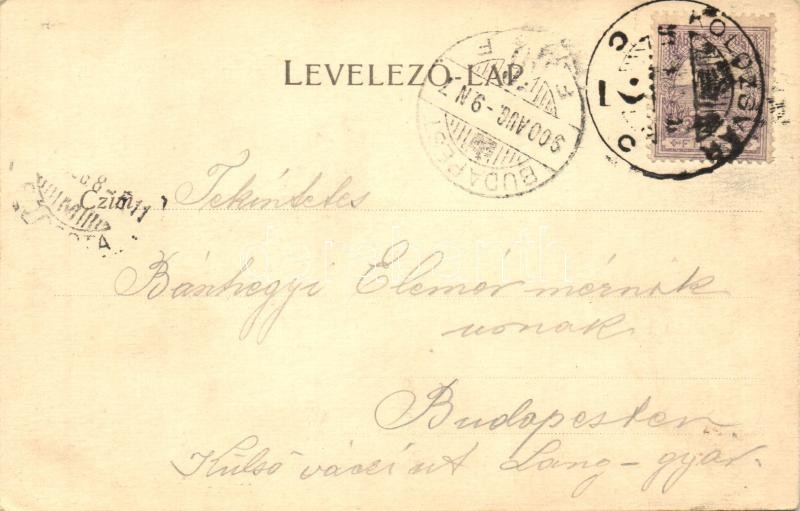 LEVELEZŐ-LAP.
KOLOZSVÁR
BUDAPEST
900 AUG. - 9 N 7
F F
Czim
Tekintetes
Bánhegyi Elemér mérnök
urnak
Budapesten
Külső váczi ut Lang-gyár.